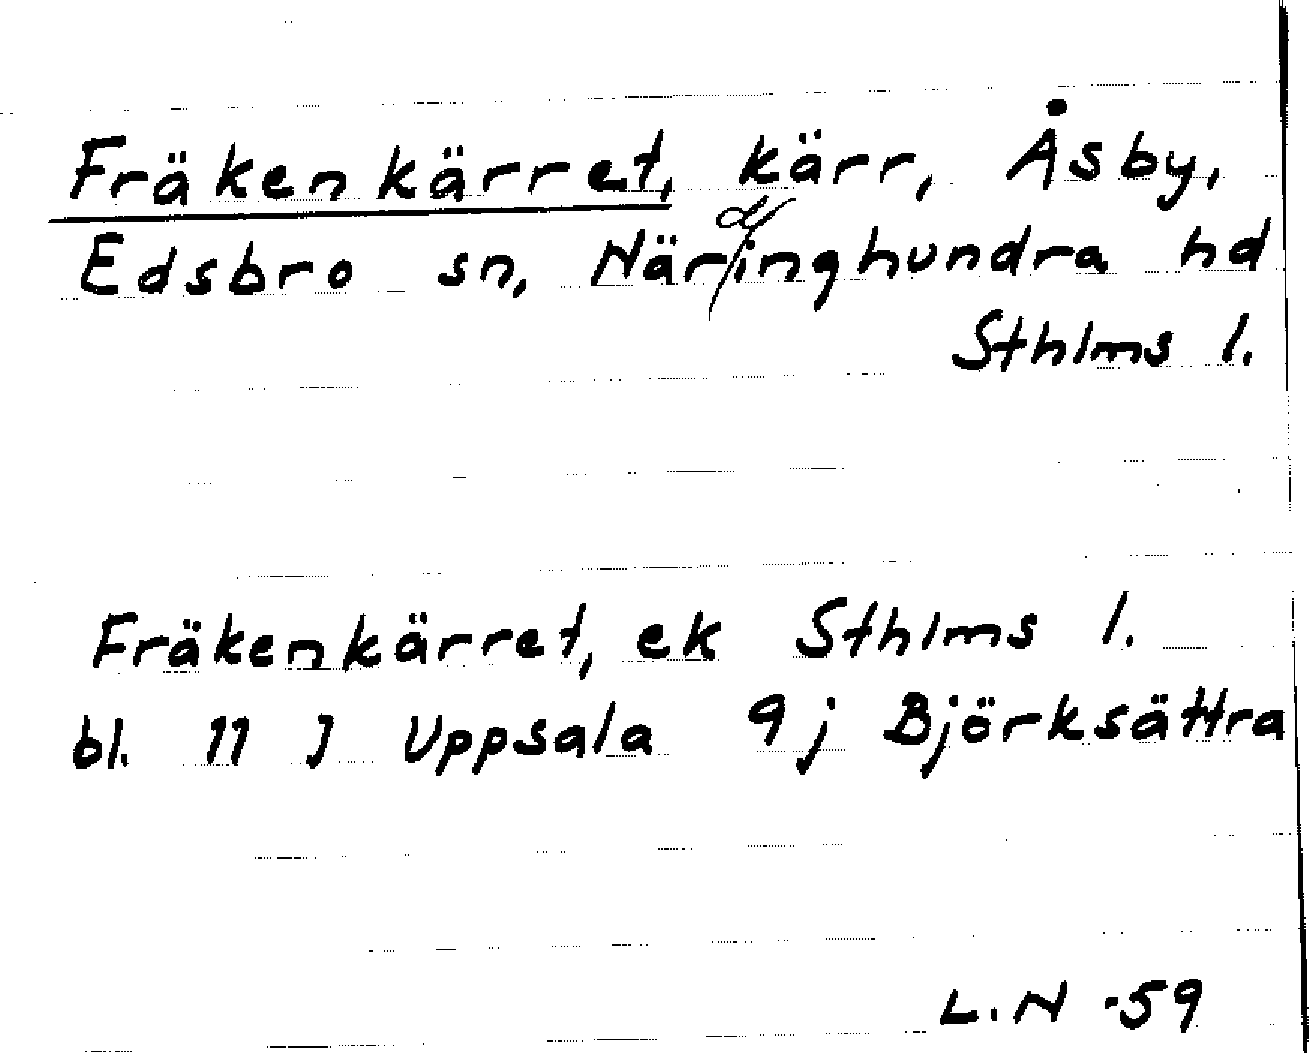 Fräkenkärret, kärr, Åsby,
Edsbro sn, Närdinghundra hd
Sthlms l.
Fräkenkärret, ek Sthlms l.
bl. 11 J Uppsala 9j Björksättra
L.N -59